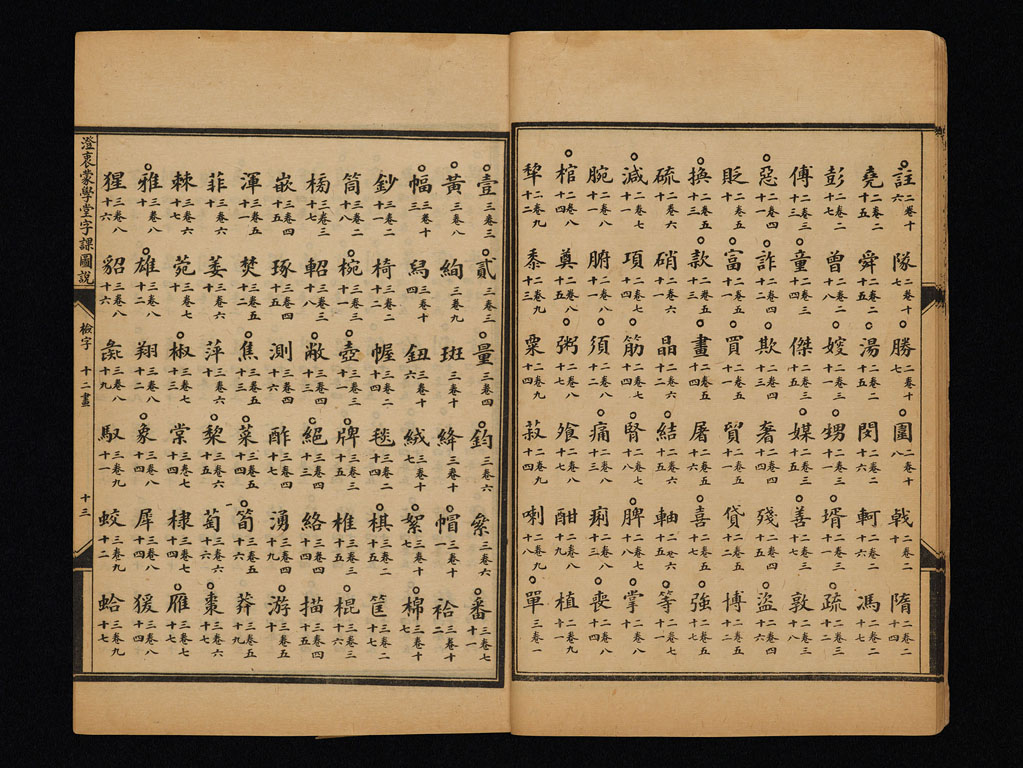 註二卷十六 隊二卷十七 勝二卷十七 圍二卷十八 戟二卷二十 隋二卷二十四
堯二卷二十五 舜二卷二十五 湯二卷二十五 閔二卷二十六 軻二卷二十六 馮二卷二十七
彭二卷二十七 曾二卷二十八 嫂二卷三十一 甥二卷三十一 壻二卷三十一 疏二卷三十二
傅二卷三十三 童二卷三十四 傑二卷三十五 媒二卷三十五 善二卷三十七 敦二卷三十八
惡二卷四十一 詐二卷四十二 欺二卷四十三 奢二卷四十四 殘二卷五十四 盜二卷四十六
貶二卷五十一 富二卷五十一 買二卷五十一 貿二卷五十一 貸二卷五十二 博二卷五十二
換二卷五十三 款二卷五十三 畫二卷五十四 屠二卷五十六 喜二卷五十七 強二卷五十七
硫二卷六十一 硝二卷六十一 晶二卷六十二 結二卷六十四 軸二卷六十五 等二卷七十一
減二卷七十一 項二卷七十四 筋二卷七十五 腎二卷七十八 脾二卷七十八 掌二卷八十
腕二卷八十 腑二卷八十一 須二卷八十二 痛二卷八十三 痢二卷八十三 喪二卷八十四
棺二卷八十四 奠二卷八十五 粥二卷八十七 飧二卷八十七 酣二卷八十九 植二卷九十一
犂二卷九十二 黍二卷九十三 粟二卷九十四 菽二卷九十四 喇二卷九十八 單三卷一
壹三卷三 貳三卷三 量三卷四 鈞三卷六 絫三卷六 番三卷七十一
黃三卷八 絢三卷九 斑三卷十 絳三卷十 帽三卷十一 袷三卷十二
幅三卷十三 舄三卷十四 鈕三卷十六 絨三卷十七 絮三卷十七 棉三卷十七
鈔三卷二十一 椅三卷二十二 幄三卷二十四 毯三卷二十四 棋三卷二十五 筐三卷二十七
筒三卷二十八 椀三卷三十一 壺三卷三十一 牌三卷三十四 椎三卷三十五 棍三卷三十六
楊三卷三十七 軺三卷三十八 敝三卷四十三 絕三卷四十三 絡三卷四十四 描三卷四十五
嵌三卷四十五 琢三卷四十五 測三卷四十六 酢三卷四十七 湧三卷四十九 游三卷五十
渾三卷五十一 焚三卷五十二 焦三卷五十三 菜三卷五十四 筍三卷五十六 莽三卷五十九
菲三卷六十 萋三卷六十 萍三卷六十 黎三卷六十五 萄三卷六十六 棗三卷六十七
棘三卷六十七 菀三卷七十 椒三卷七十三 棠三卷七十四 棣三卷七十四 雁三卷七十七
雅三卷八十 雄三卷八十二 翔三卷八十二 象三卷八十四 犀三卷八十四 猨三卷八十四
猩三卷八十六 貂三卷八十六 彘三卷八十九 馭三卷九十一 蛟三卷九十二 蛤三卷九十七
澄衷蒙學堂字課圖說 檢字 十二畫 十三